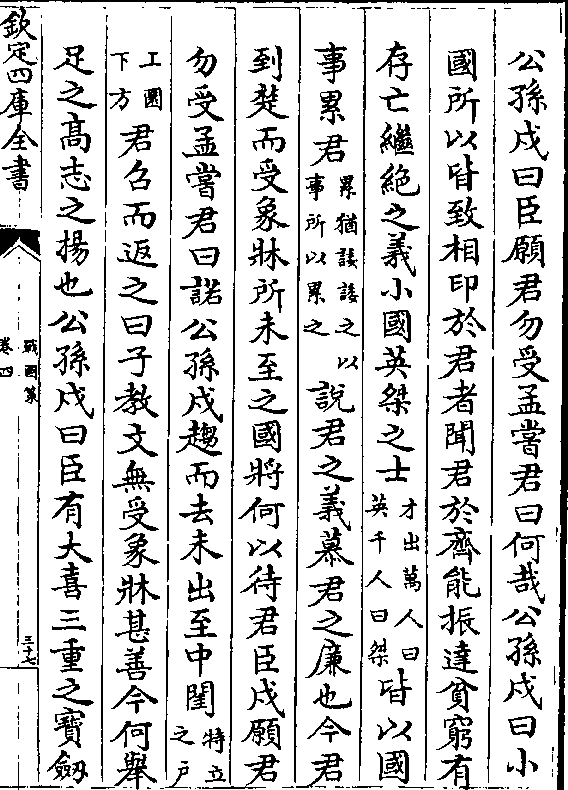 公孫戍曰臣願君勿受孟嘗君曰何哉公孫戍曰小
國所以皆致相印於君者聞君於齊能振達貧窮有
存亡繼絶之義小國英桀之士才出萬人曰英千人曰桀皆以國
事累君累猶諉諉之以事所以累之說君之義慕君之廉也今君
到楚而受象牀所未至之國將何以待君臣戍願君
勿受孟嘗君曰諾公孫戍趨而去未出至中閨特立之戶
工圜下方君召而返之曰子教文無受象牀甚善今何舉
足之髙志之揚也公孫戍曰臣有大喜三重之寶劔
欽定四庫全書
戰國策
卷四
三十七